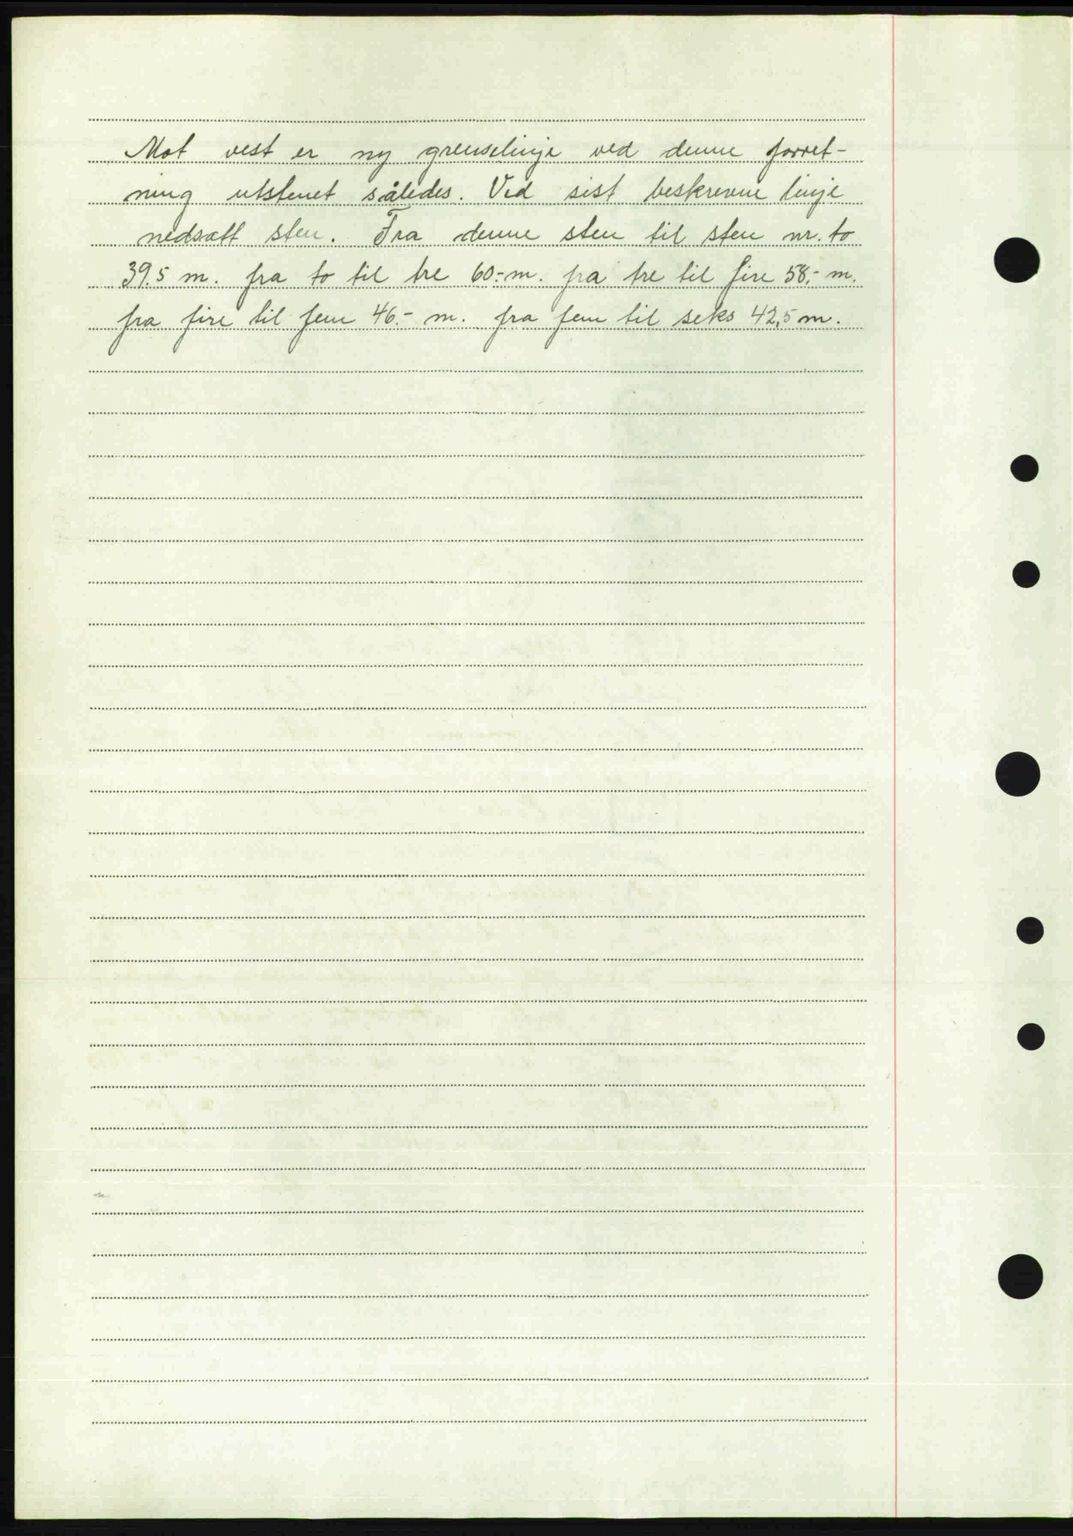 Mot vest er ny grenselinje ved denne forret-
ning utstenet således. Ved sist beskrevne linje
nedsatt sten. Fra denne sten til sten nr. to
39.5 m. fra to til tre 60.- m. fra tre til fire 58,- m.
fra fire til fem 46.- m. fra fem til seks 42,5 m.